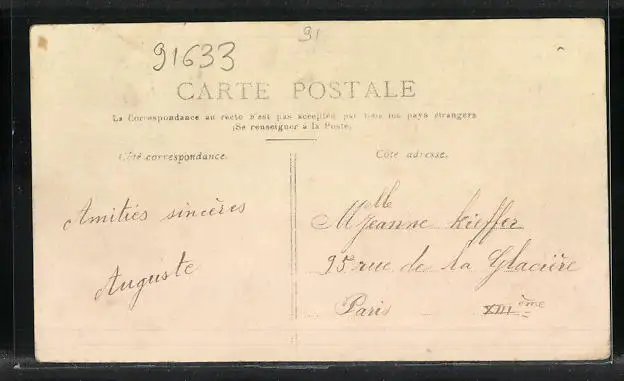 91
91633
CARTE POSTALE
La Correspondance au recto n'est pas acceptée par tous les pays étrangers
(Se renseigner à la Poste)
Côté correspondance.
Côté adresse.
Amitiés sincères
Auguste
Mlle Jeanne Kieffer
95 rue de la Glacière
Paris XIIIème